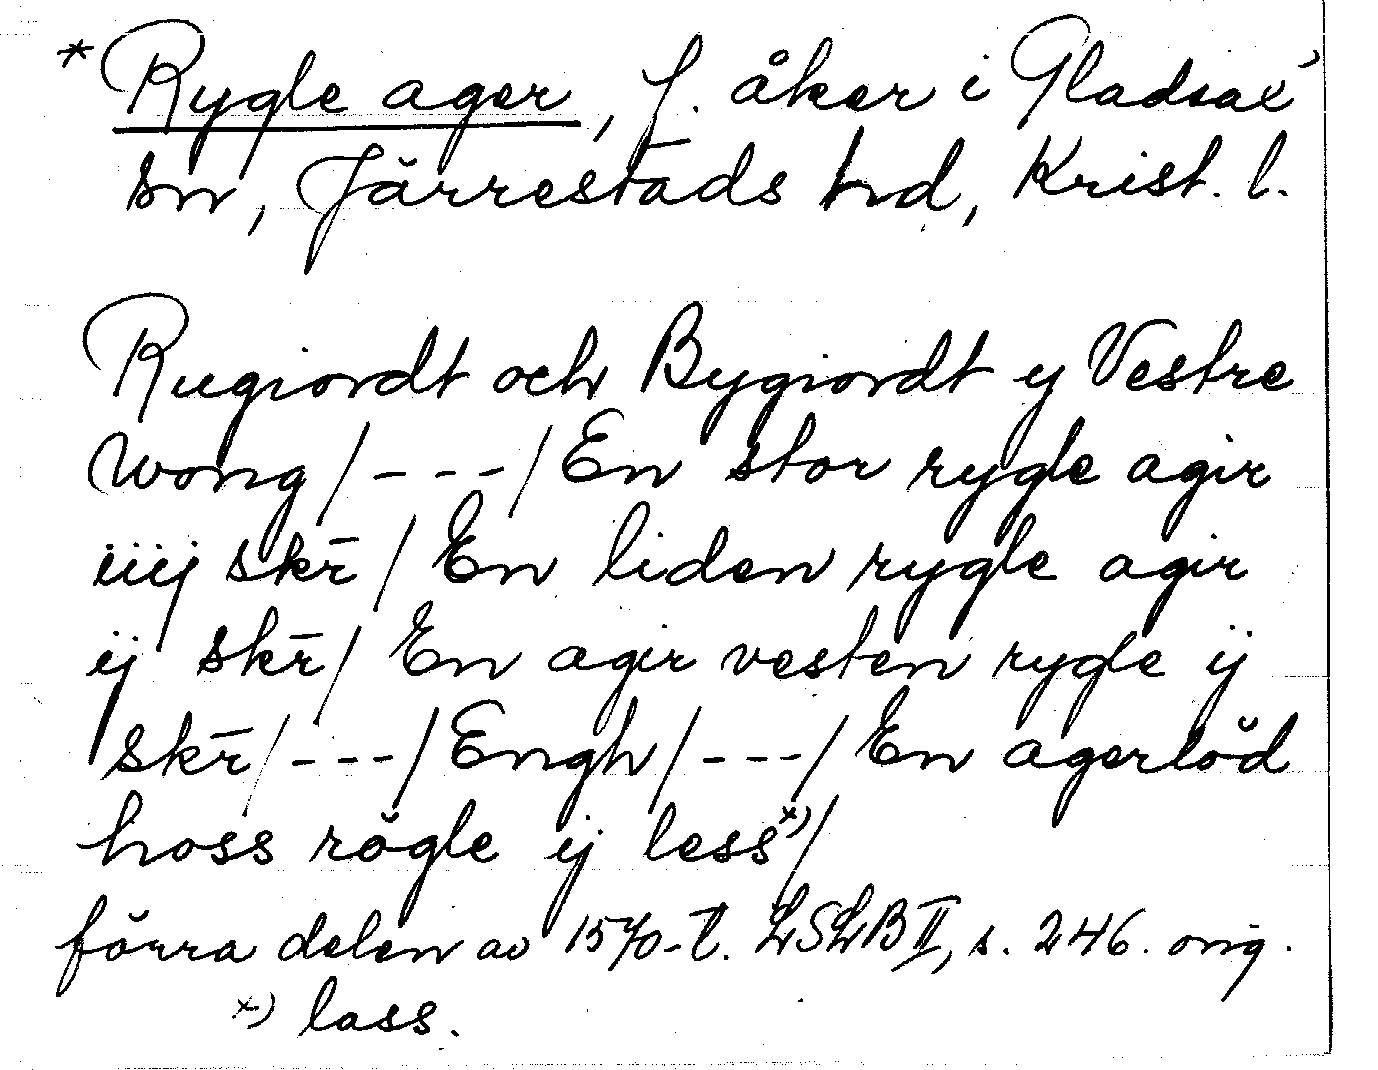 * Rygle ager, f. åker i Gladsax'
sn, Järrestads hd, Krist. l.
Rugiordt och Bygiordt y Vestre
Wong/---/En stor rygle agir
iiij skr̄/ En liden rygle agir
ij skr̄/ En agir vesten rygle ij
skr̄/---/Engh/---/En agerlöd
hoss rögle ij less x)/
förra delen av 1570-t. LSLB II, s. 246. orig.
x) lass.